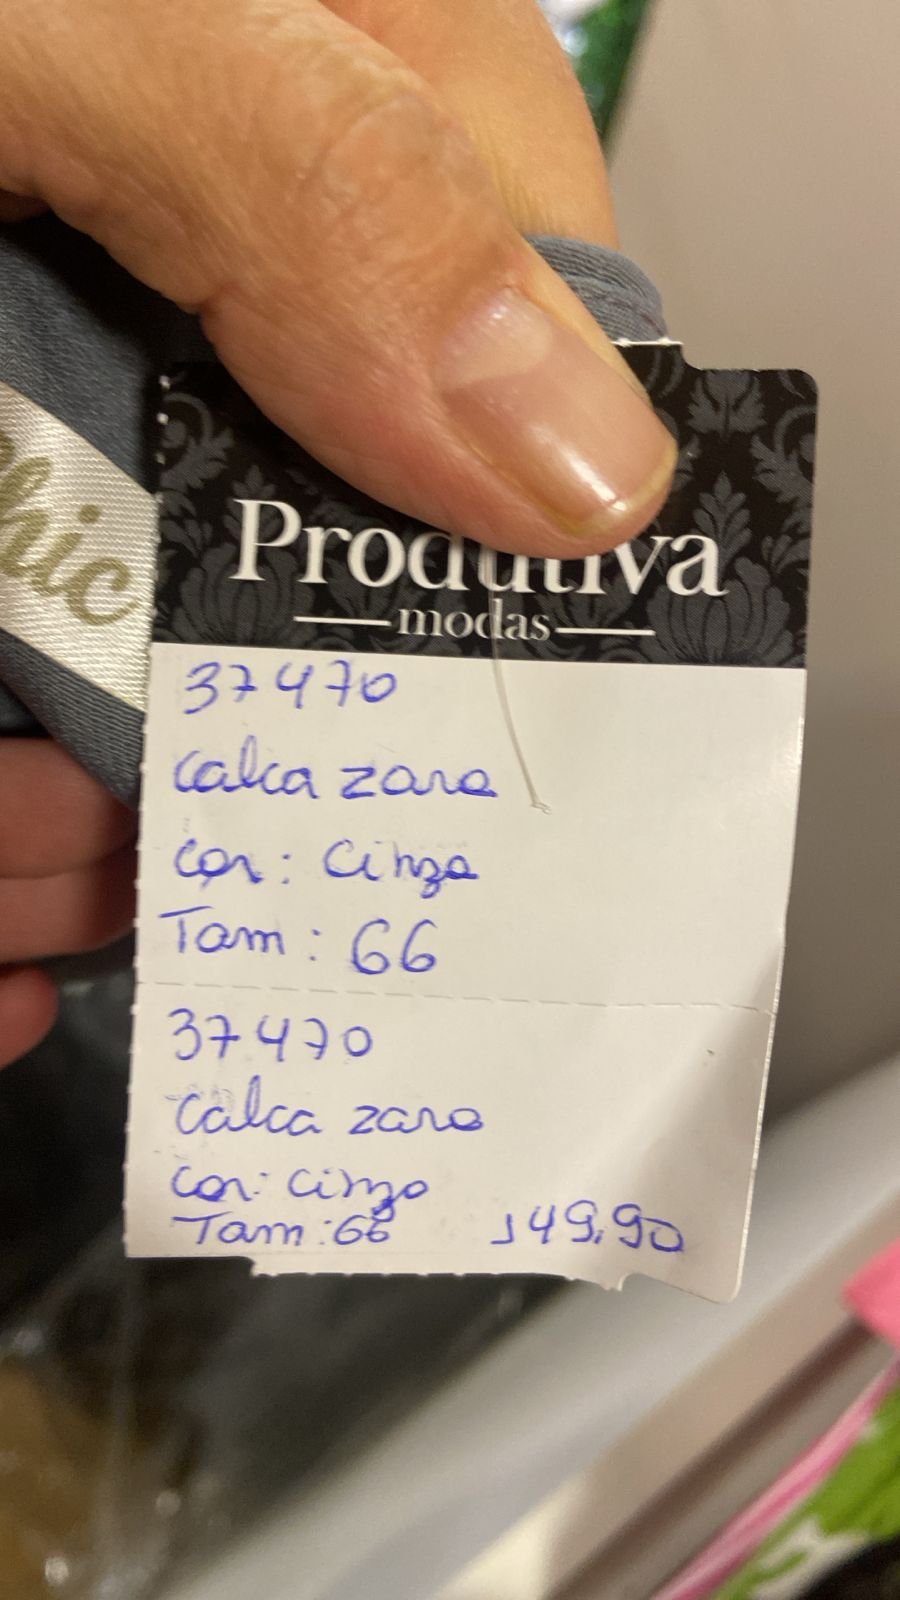 Produtiva
modas
hic
37470
calca zara
cor: cinza
Tam: 66
37470
calca zara
cor: cinza
Tam: 66 149,90